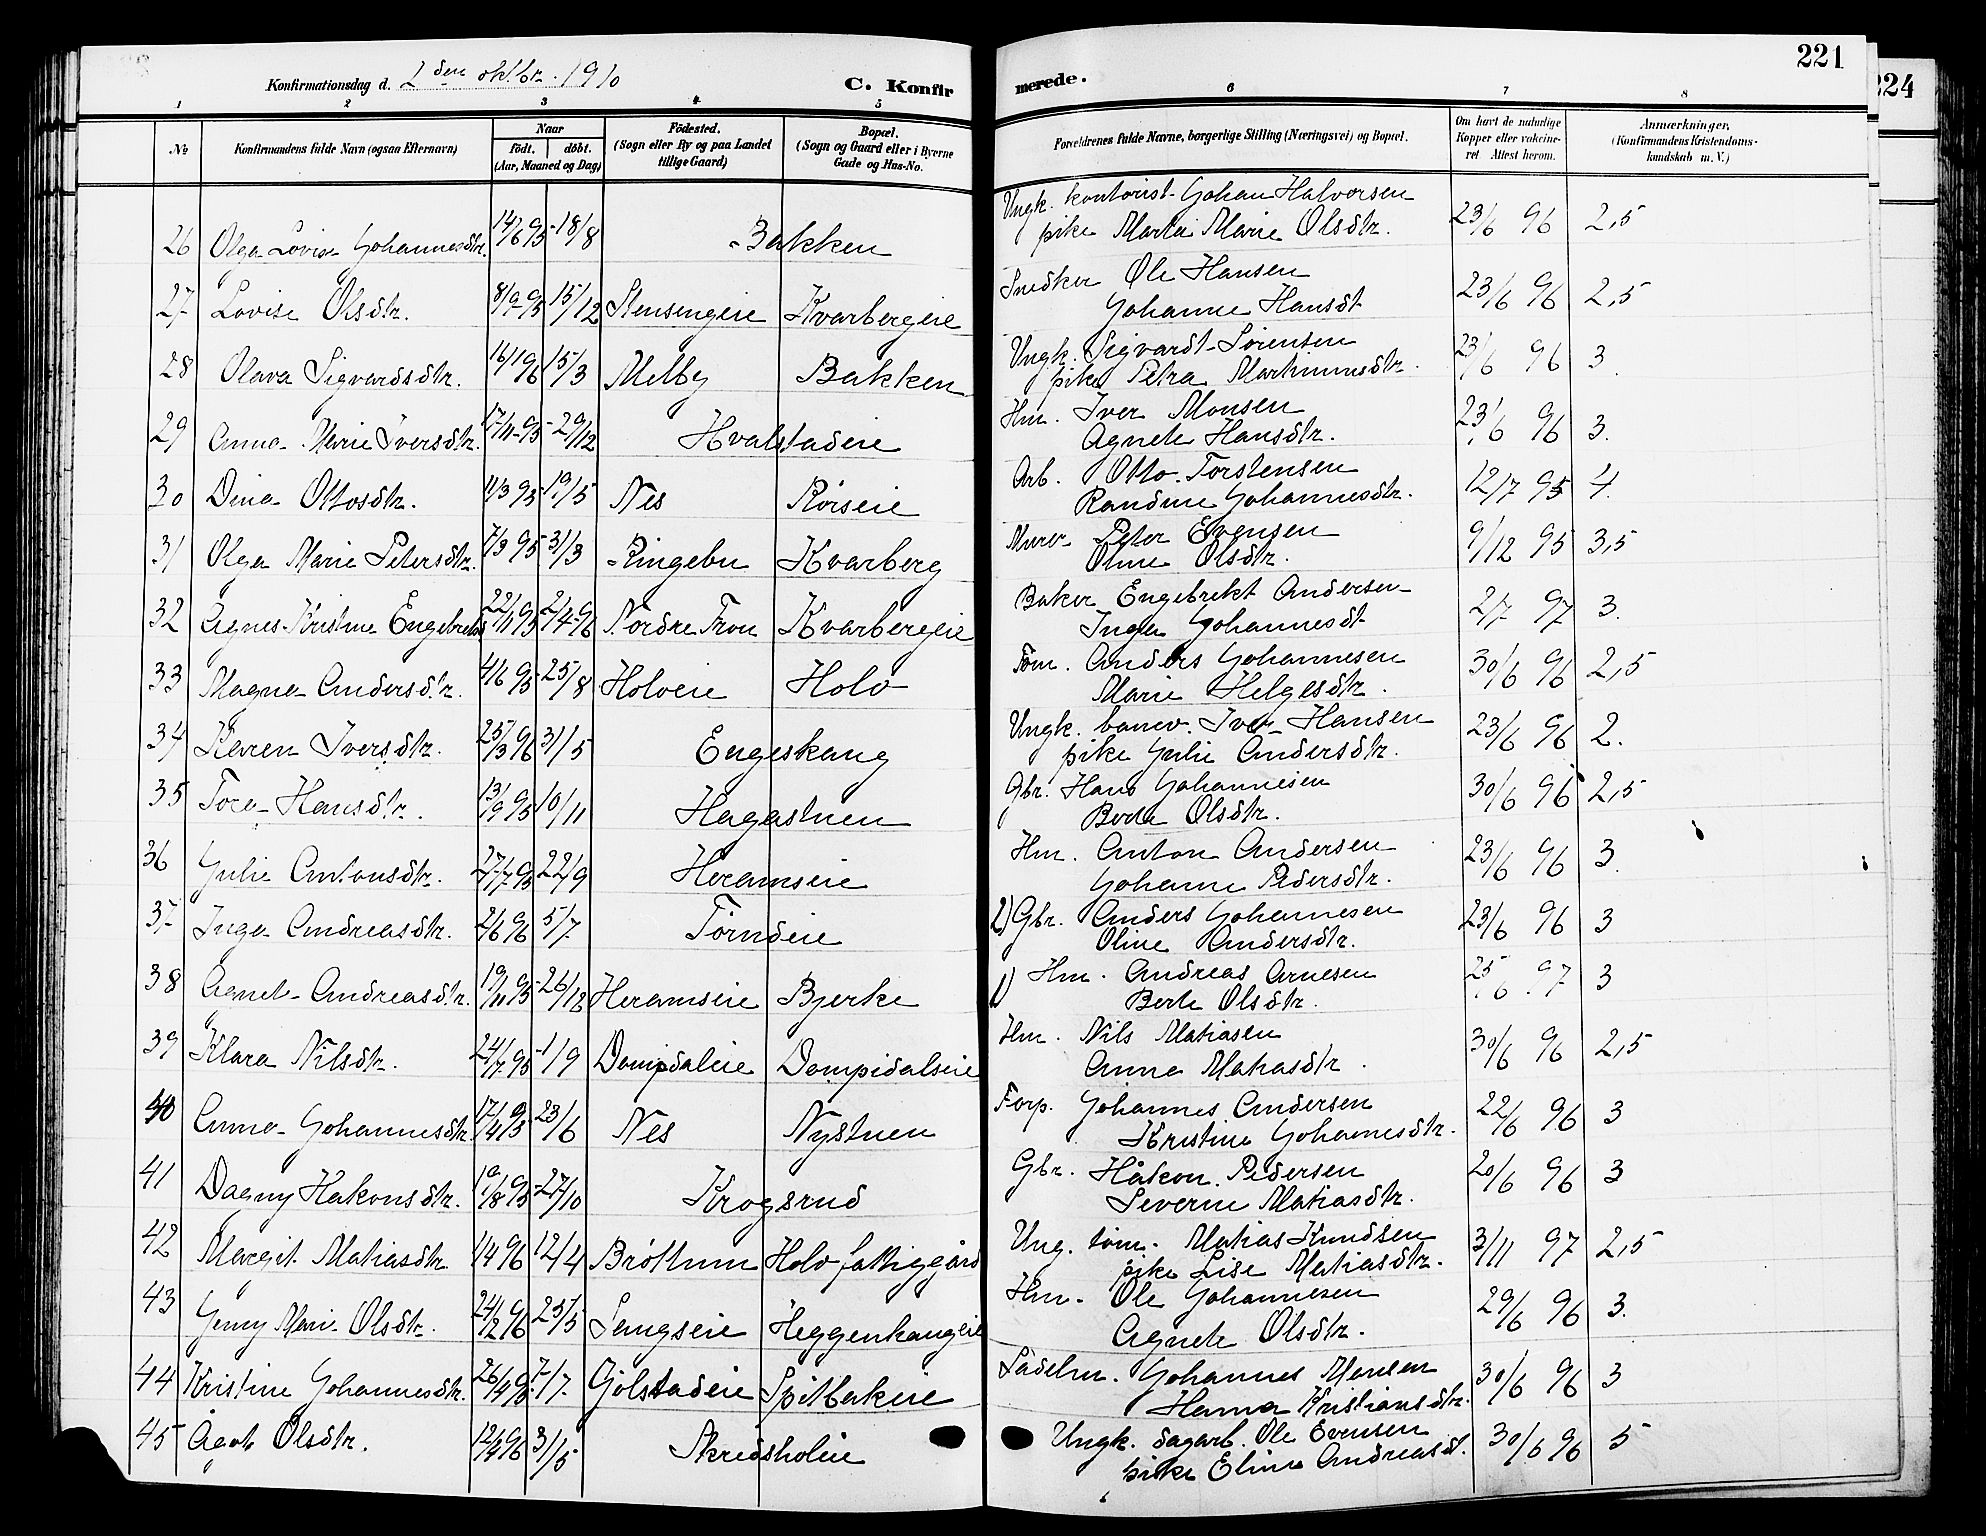 221
224
Konfirmationsdag d. 2den oktbr. 1910 C. Konfirmerede.
1 2 3 4 5 6 7 8
No Konfirmandens fulde Navn (ogsaa Efternavn) Naar Født. døbt. (Aar, Maaned og Dag) Fødested. (Sogn eller By og paa Landet tillige Gaard) Bopæl. (Sogn og Gaard eller i Byerne Gade og Hus-No. Forældrenes fulde Navne, borgerlige Stilling (Næringsvei) og Bopæl. Om havt de naturlige Kopper eller vakcineret. Attest herom. Anmærkninger. (Konfirmandens Kristendomskundskab m. V.)
26 Olga Lovise Johannesdtr. 14/6 95 18/8 Bakken Ungk. kontorist Johan Halvorsen 23/6 96 2,5
pike Marta Marie Olsdtr.
27 Lovise Olsdtr. 8/9 95 15/12 Stensengeie Kvarbergeie Snedker Ole Hansen 23/6 96 2,5
Johanne Hansdt
28 Olava Sigvardsdtr. 16/1 96 15/3 Melby Bakken Ungk. Sigvardt Sørensen 23/6 96 3
pike Petra Martinusdtr.
29 Anna Marie Iversdtr. 17/11 95 29/12 Hvalstadeie Hm. Iver Monsen 23/6 96 3.
Agnete Hansdtr.
30 Dina Ottosdtr. 11/3 95 19/5 Nes Rørseie Arb. Otto Torstensen 12/7 95 4.
Randine Johannesdtr.
31 Olga Marie Petersdtr. 7/3 95 31/3 Ringebu Kvarberg Murer Peter Evensen 9/12 95 3,5
Oline Olsdtr.
32 Agnes Kristine Engebretsd 22/11 95 2/4 96 Nordre Fron Kvarbergeie Baker Engebrekt Andersen 2/7 97 3.
Inga Johannesdt
33 Magna Andersdtr. 4/6 95 25/8 Holveie Holv Tøm. Anders Johannesen 30/6 96 2,5
Marie Helgesdtr.
34 Karen Iversdtr. 25/3 96 31/5 Engeskaug Ungk. banev. Iver Hansen 23/6 96 2.
pike Julie Andersdtr.
35 Tora Hansdtr. 13/9 95 10/11 Hagastuen Gbr. Hans Johannesen 30/6 96 2,5
Berte Olsdtr.
36 Julie Antonsdtr. 27/7 95 22/9 Heramseie Hm. Anton Andersen 23/6 96 3.
Johanne Pedersdtr.
37 Inga Andreasdtr. 2/6 96 5/7 Tørudeie 2) Gbr. Anders Johannesen 23/6 96 3
Oline Andersdtr.
38 Agnet Andreasdtr. 19/11 95 26/12 Heramseie Bjerke 1) Hm. Andreas Arnesen 25/6 97 3
Berte Olsdtr.
39 Klara Nilsdtr. 24/7 95 1/9 Dompidaleie Dompidalseie Hm. Nils Matiasen 30/6 96 2,5
Anna Matiasdtr.
40 Anna Johannesdtr. 17/4 95 23/6 Nes Nystuen Forp. Johannes Andersen 22/6 96 3
Kristine Johannesdtr.
41 Dagny Hakonsdtr. 19/8 95 27/10 Krogsrud Gbr. Håkon Pedersen 20/6 96 3
Severine Matiasdtr.
42 Margit Matiasdtr. 1/4 96 12/4 Brøttum Holv fattiggård Ung. tøm. Matias Knudsen 3/11 97 2,5
pike Lise Matiasdtr.
43 Jenny Marie Olsdtr. 24/2 96 25/5 Semgseie Heggenhaugeie Hm. Ole Johannesen 29/6 96 3.
Agnete Olsdtr.
44 Kristine Johannesdtr. 26/4 95 7/7 Gjølstadeie Spitbakeie Sadelm. Johannes Mensen 30/6 96 3
Hanna Kristiansdtr.
45 Ågot Olsdtr. 12/4 96 31/5 Skredsholeie Ungk. dagarb. Ole Evensen 30/6 96 5
pike Eline Andreasdt.